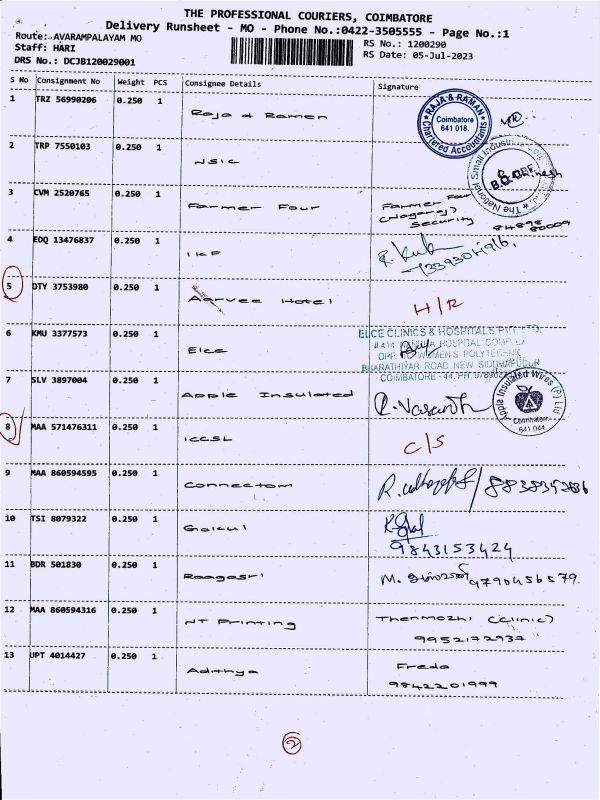 THE PROFESSIONAL COURIERS, COIMBATORE
Delivery Runsheet - MO - Phone No.:0422-3505555 - Page No.:1
Route: AVARAMPALAYAM MO
RS No.: 1200290
Staff: HARI
RS Date: 05-Jul-2023
DRS No.: DCJB120029001
S No Consignment No Weight PCS Consignee Details Signature
1 TRZ 56990206 0.250 1 Raja & Ramen
RAJA & RAMAN
Coimbatore
641 018.
Chartered Accountants
2 TRP 7550103 0.250 1 NSIC
The National Small Industries
3 CVM 2520765 0.250 1 Farmer Four Farmer Four
(Nagaraj)
Security
84898
80009
4 EDQ 13476837 0.250 1 IKF
5 DTY 3753980 0.250 1 Aarvee Hotel H/R
6 KMU 3377573 0.250 1 Elce
ELCE CLINICS & HOSPITALS PVT. LTD.
HOSPITAL COMPLEX
OPP. TO WOMEN'S POLYTECHNIC
BHARATHIYAR ROAD, NEW SIDDHAPUDUR
COIMBATORE - 44. PH:
7 SLV 3897004 0.250 1 Apple Insulated R. Vasanth
Apple Insulated Wires (P) Ltd
Coimbatore
641 044
8 MAA 571476311 0.250 1 ICCSL C/S
9 MAA 860594595 0.250 1 Connectom
10 TSI 8079322 0.250 1
9843153424
11 BDR 501830 0.250 1 Raagasri M.
9790456579
12 MAA 860594316 0.250 1 NT Printing Thenmozhi (Clinic)
9952172937
13 UPT 4014427 0.250 1 Adithya Freda
9842201999
2